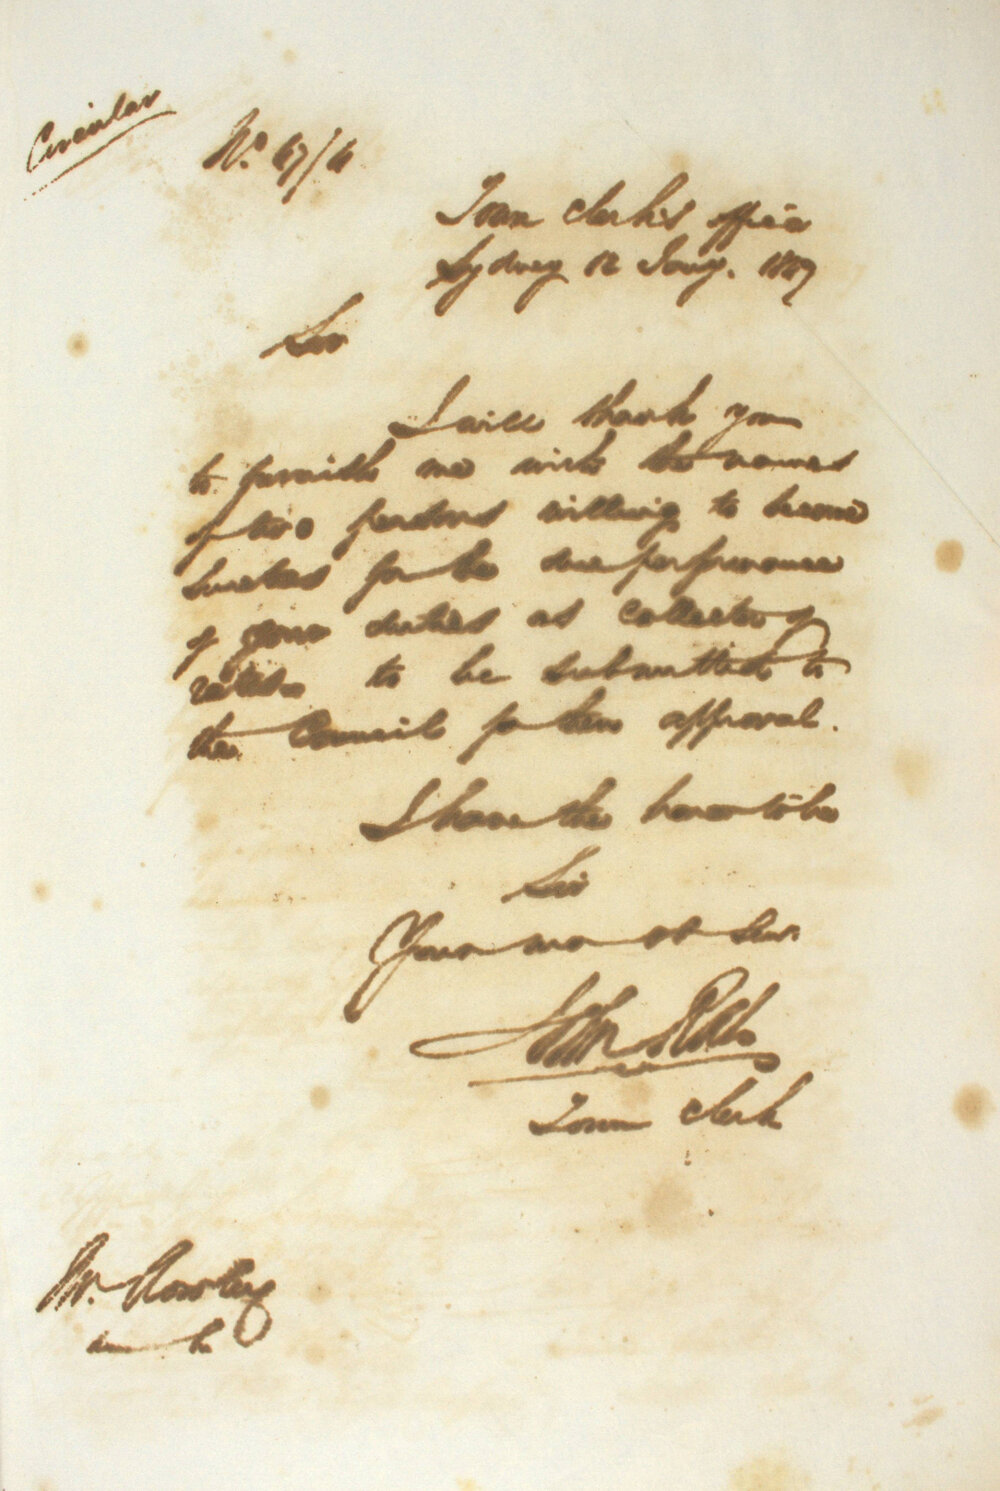 Circular
No. 47/4
Town Clerk's Office
Sydney 12 Jany. 1847
Sir
I will thank you
to furnish me with the names
of two persons willing to become
sureties for the due performance
of your duties as Collector of
rates to be submitted to
the Council for their approval.
I have the honor to be
Sir
Your mo ob Serv.
John Rae
Town Clerk
Mr. Rowley